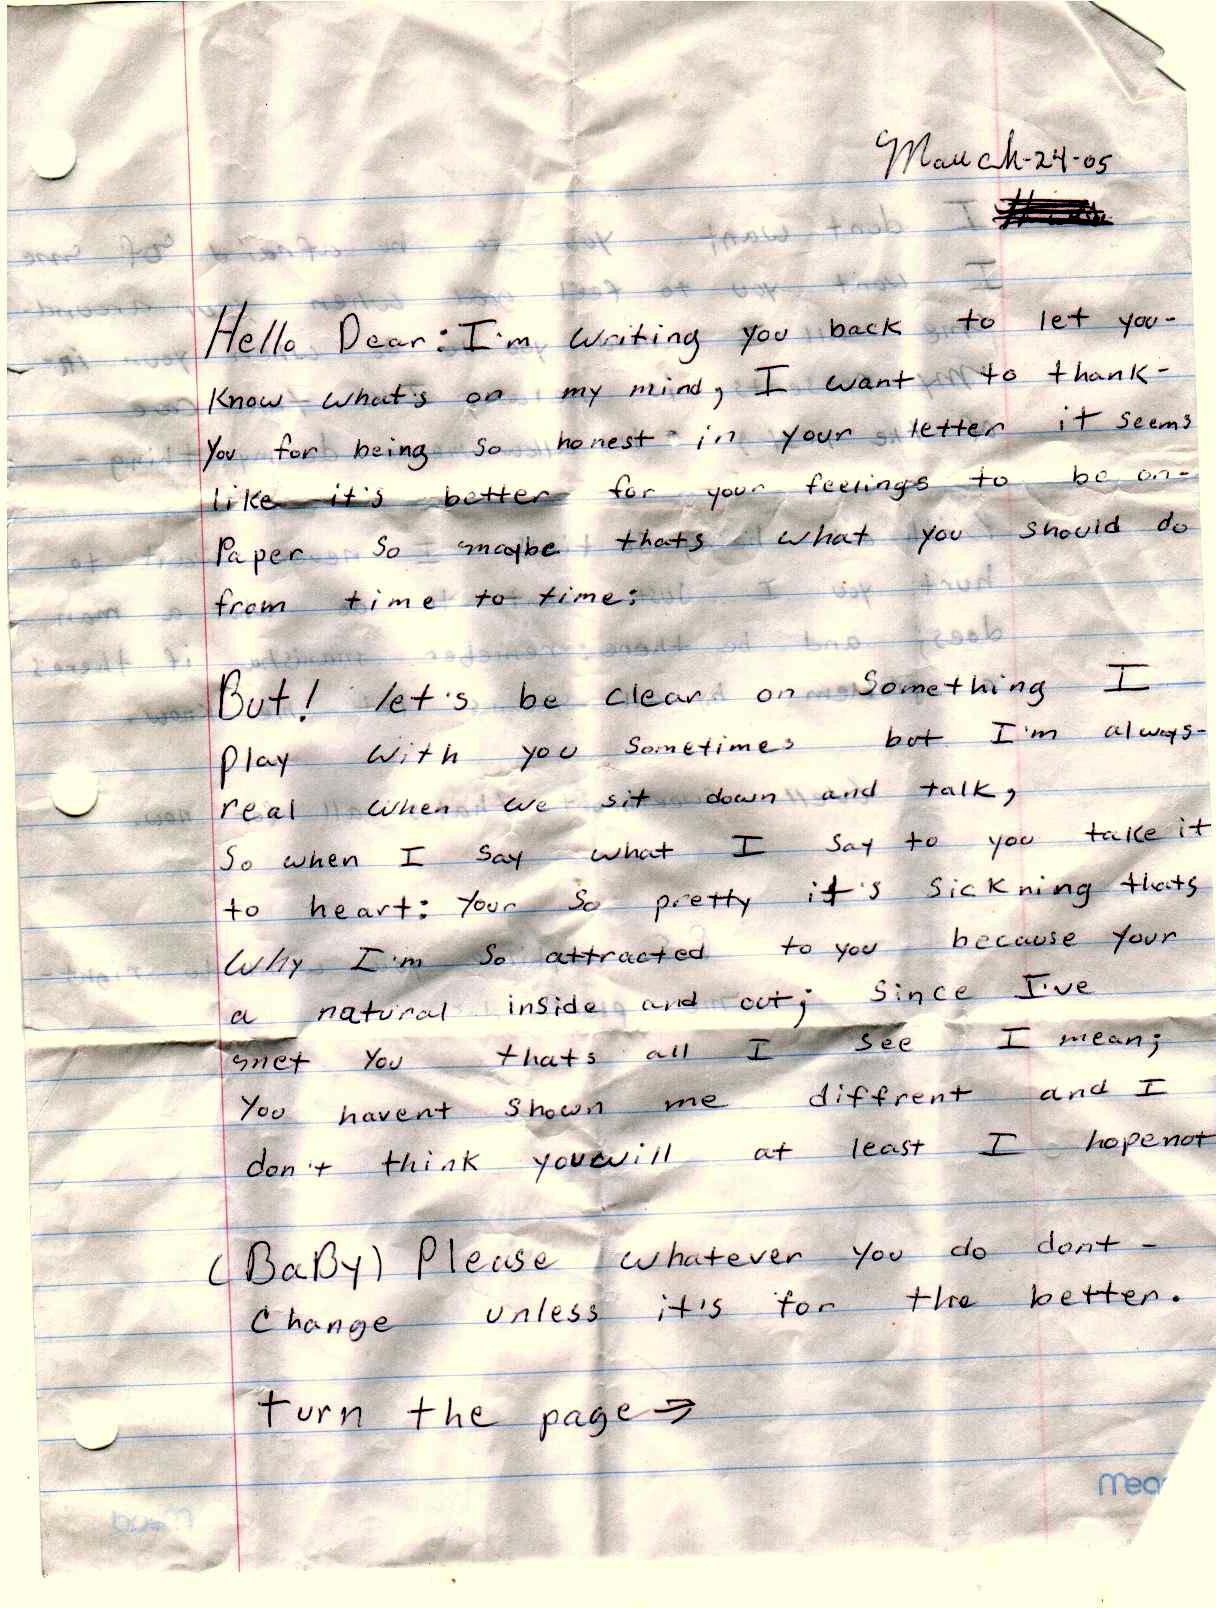 March-24-05
Hello Dear: I'm writing you back to let you-
know what's on my mind, I want to thank-
you for being so honest in your letter it seems
like it's better for your feelings to be on-
Paper so maybe thats what you should do
from time to time:
But! let's be clear on something I
play with you sometimes but I'm always-
real when we sit down and talk,
So when I say what I say to you take it
to heart: Your so pretty it's sickning thats
why I'm so attracted to you because your
a natural inside and out; since I've
met you thats all I see I mean;
you havent shown me diffrent and I
don't think you will at least I hope not
(BaBy) Please whatever you do dont -
change unless it's for the better.
turn the page →
Mea